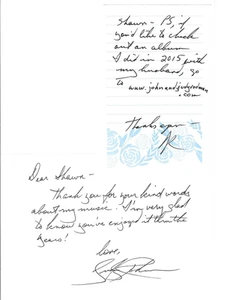 Shawn - PS, if
you'd like to check
out an album
I did in 2015 with
my husband, go
to
www.johnandjudyrodman
.com
Thanks again -
Dear Shawn -
Thank you for your kind words
about my music. I'm very glad
to know you've enjoyed it thru the
years!
Love,
Judy Rodman